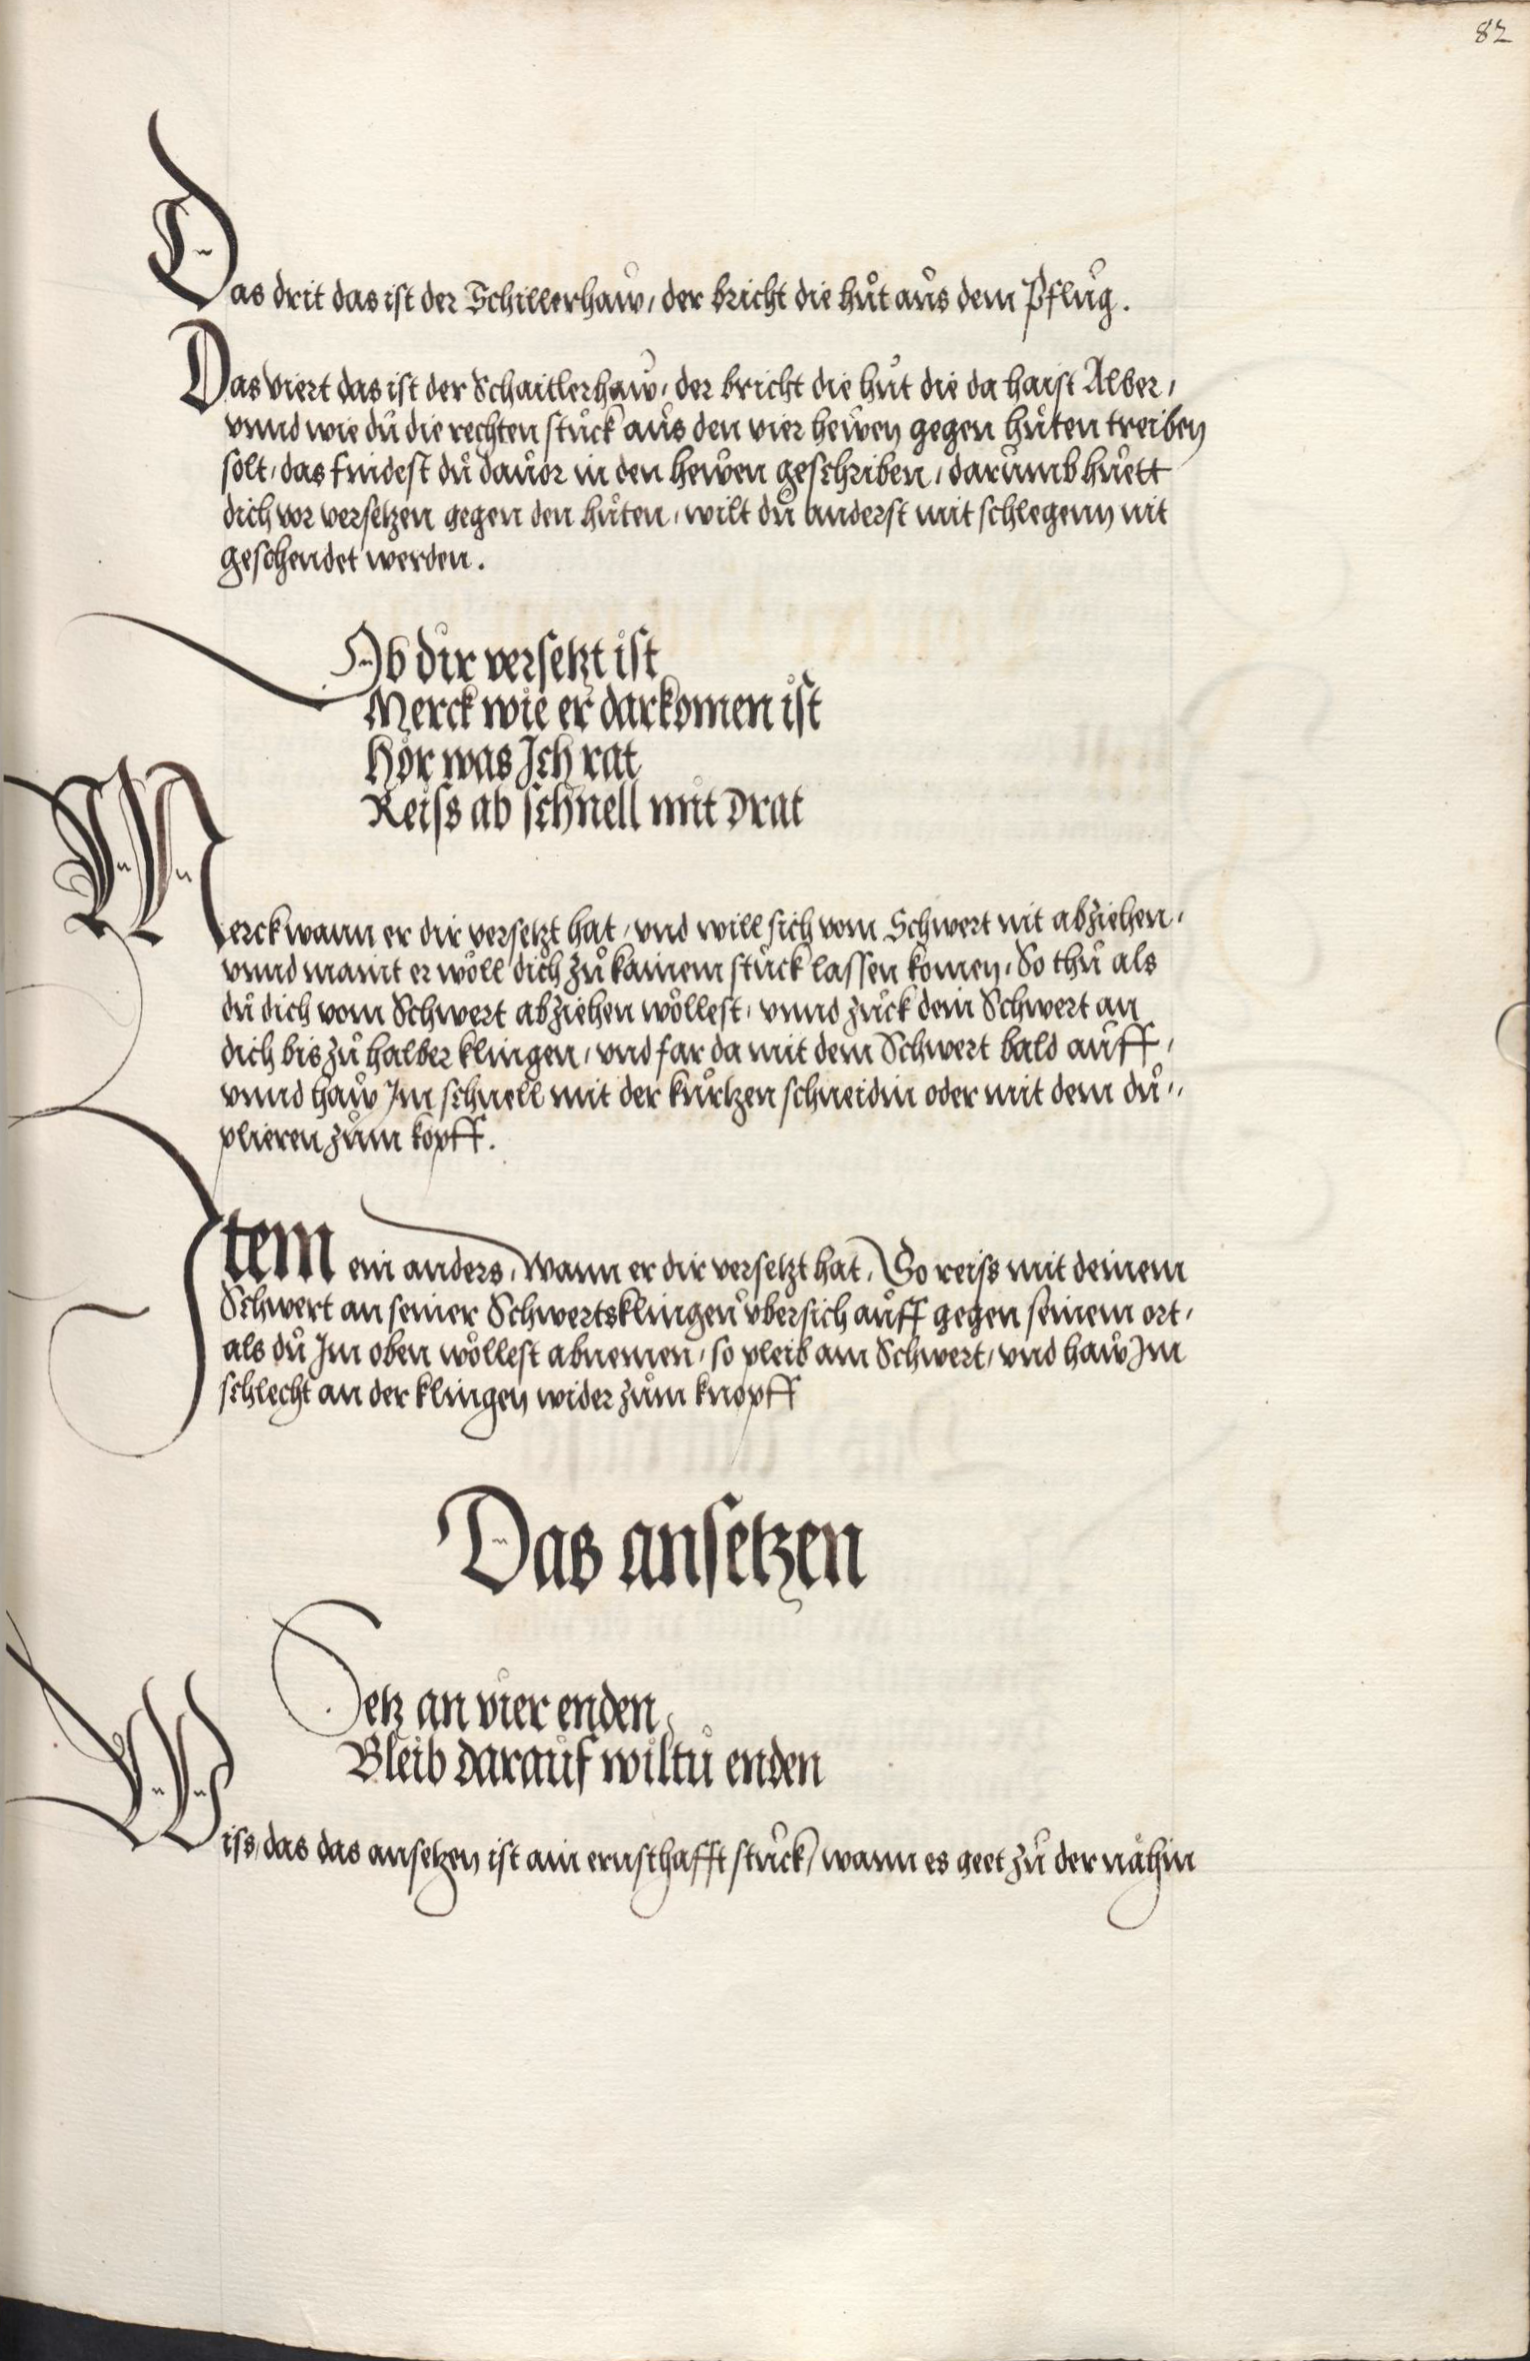 82
Das drit das ist der Schillerhaw, der bricht die hůt aůs dem Pflůg.
Das viert das ist der Schaitlerhaw, der bricht die hůt die da haist Alber,
vnnd wie dů die rechten stůck aůs den vier hewen gegen hůten treiben
solt, das findest dů dauor in den hewen geschriben, darůmb hůett
dich vor versetzen gegen den hůten, wilt dů anderst mit schlegenn nit
geschendet werden.
Ob dir versetzt ist
Merck wie er darkomen ist
Hör was Ich rat
Reiss ab schnell mit drat
Merck wann er dir versetzt hat, vnd will sich vom Schwert nit abziehen,
vnnd maint er wöll dich zů kainem stůck lassen komen, So thů als
dů dich vom Schwert abziehen wöllest, vnnd zůck dein Schwert an
dich bis zů halber klingen, vnd far da mit dem Schwert bald aůff,
vnnd haw Im schnell mit der kůrtzen schneidin oder mit dem dů,,
plieren zům kopff.
Item ein anders, Wann er dir versetzt hat, So reiss mit deinem
Schwert an seiner Schwertsklingen vbersich aůff gegen seinem ort,
als dů Im oben wöllest abnemen, so pleib am Schwert, vnd haw Im
schlecht an der klingen wider zům knopff
Das ansetzen
Setz an vier enden
Bleib daraůf wiltů enden
Wiss, das das ansetzen ist ain ernsthafft stůck, wann es geet zů der nähin